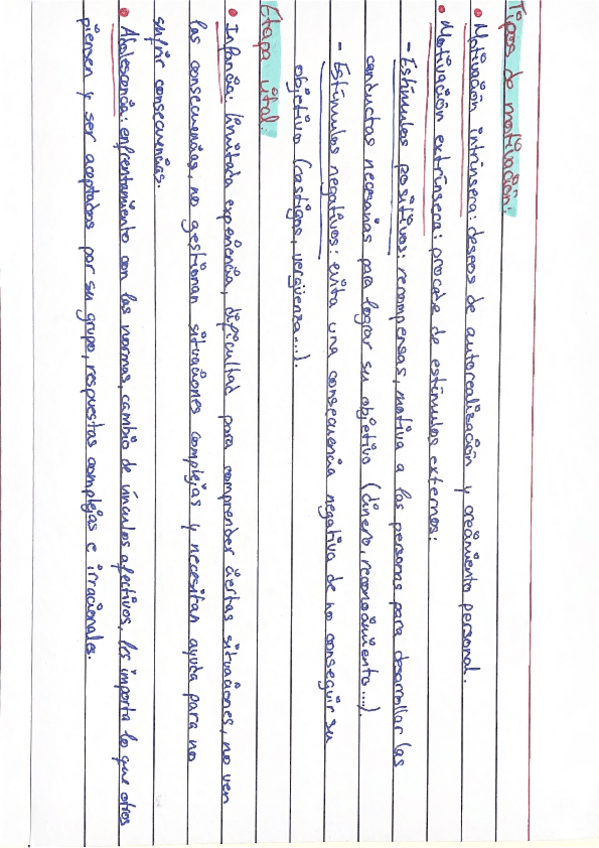 Tipos de motivación:
• Motivación intrínseca: deseos de autorealización y crecimiento personal.
• Motivación extrínseca: procede de estímulos externos:
- Estímulos positivos: recompensas, motiva a las personas para desarrollar las
conductas necesarias para lograr su objetivo (dinero, reconocimiento...).
- Estímulos negativos: evita una consecuencia negativa de no conseguir su
objetivo (castigos, vergüenza...).
Etapa vital:
• Infancia: limitada experiencia, dificultad para comprender ciertas situaciones, no ven
las consecuencias, no gestionan situaciones complejas y necesitan ayuda para no
sufrir consecuencias.
• Adolescencia: enfrentamiento con las normas, cambio de vínculos afectivos, les importa lo que otros
piensen y ser aceptados por su grupo, respuestas complejas e irracionales.